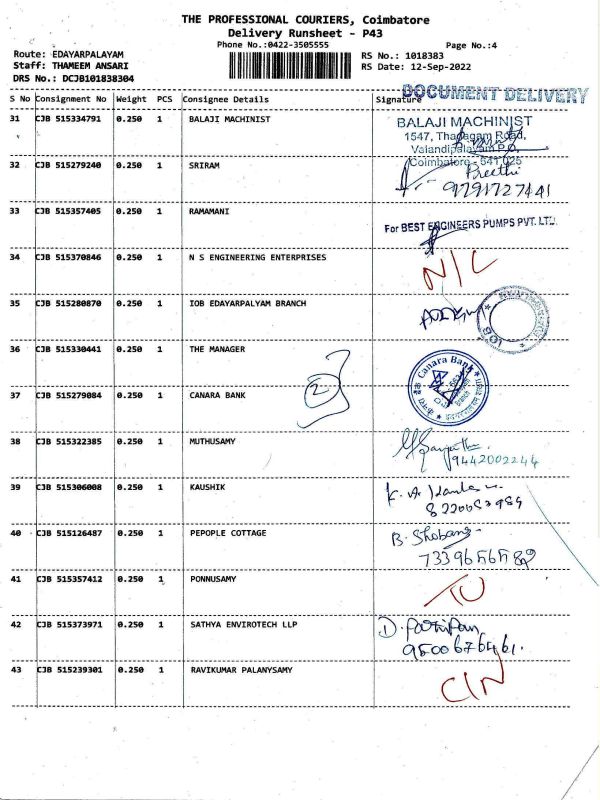 THE PROFESSIONAL COURIERS, Coimbatore
Delivery Runsheet - P43
Phone No.:0422-3505555
Page No.:4
Route: EDAYARPALAYAM
RS No.: 1018383
Staff: THAMEEM ANSARI
RS Date: 12-Sep-2022
DRS No.: DCJB101838304
DOCUMENT DELIVERY
S No Consignment No Weight PCS Consignee Details Signature
31 CJB 515334791 0.250 1 BALAJI MACHINIST
BALAJI MACHINIST
1547, Thadagam Road,
Valandipalayam P.O,
Coimbatore - 541 025
32 CJB 515279240 0.250 1 SRIRAM
Preethi
9791727441
33 CJB 515357405 0.250 1 RAMAMANI
For BEST ENGINEERS PUMPS PVT. LTD.
34 CJB 515370846 0.250 1 N S ENGINEERING ENTERPRISES
N/C
35 CJB 515280870 0.250 1 IOB EDAYARPALYAM BRANCH
IOB
36 CJB 515330441 0.250 1 THE MANAGER
2
Canara Bank
37 CJB 515279084 0.250 1 CANARA BANK
38 CJB 515322385 0.250 1 MUTHUSAMY
9442002244
39 CJB 515306008 0.250 1 KAUSHIK
40 CJB 515126487 0.250 1 PEPOPLE COTTAGE
B. Shobana
7339656582
41 CJB 515357412 0.250 1 PONNUSAMY
42 CJB 515373971 0.250 1 SATHYA ENVIROTECH LLP
43 CJB 515239301 0.250 1 RAVIKUMAR PALANYSAMY
C/N